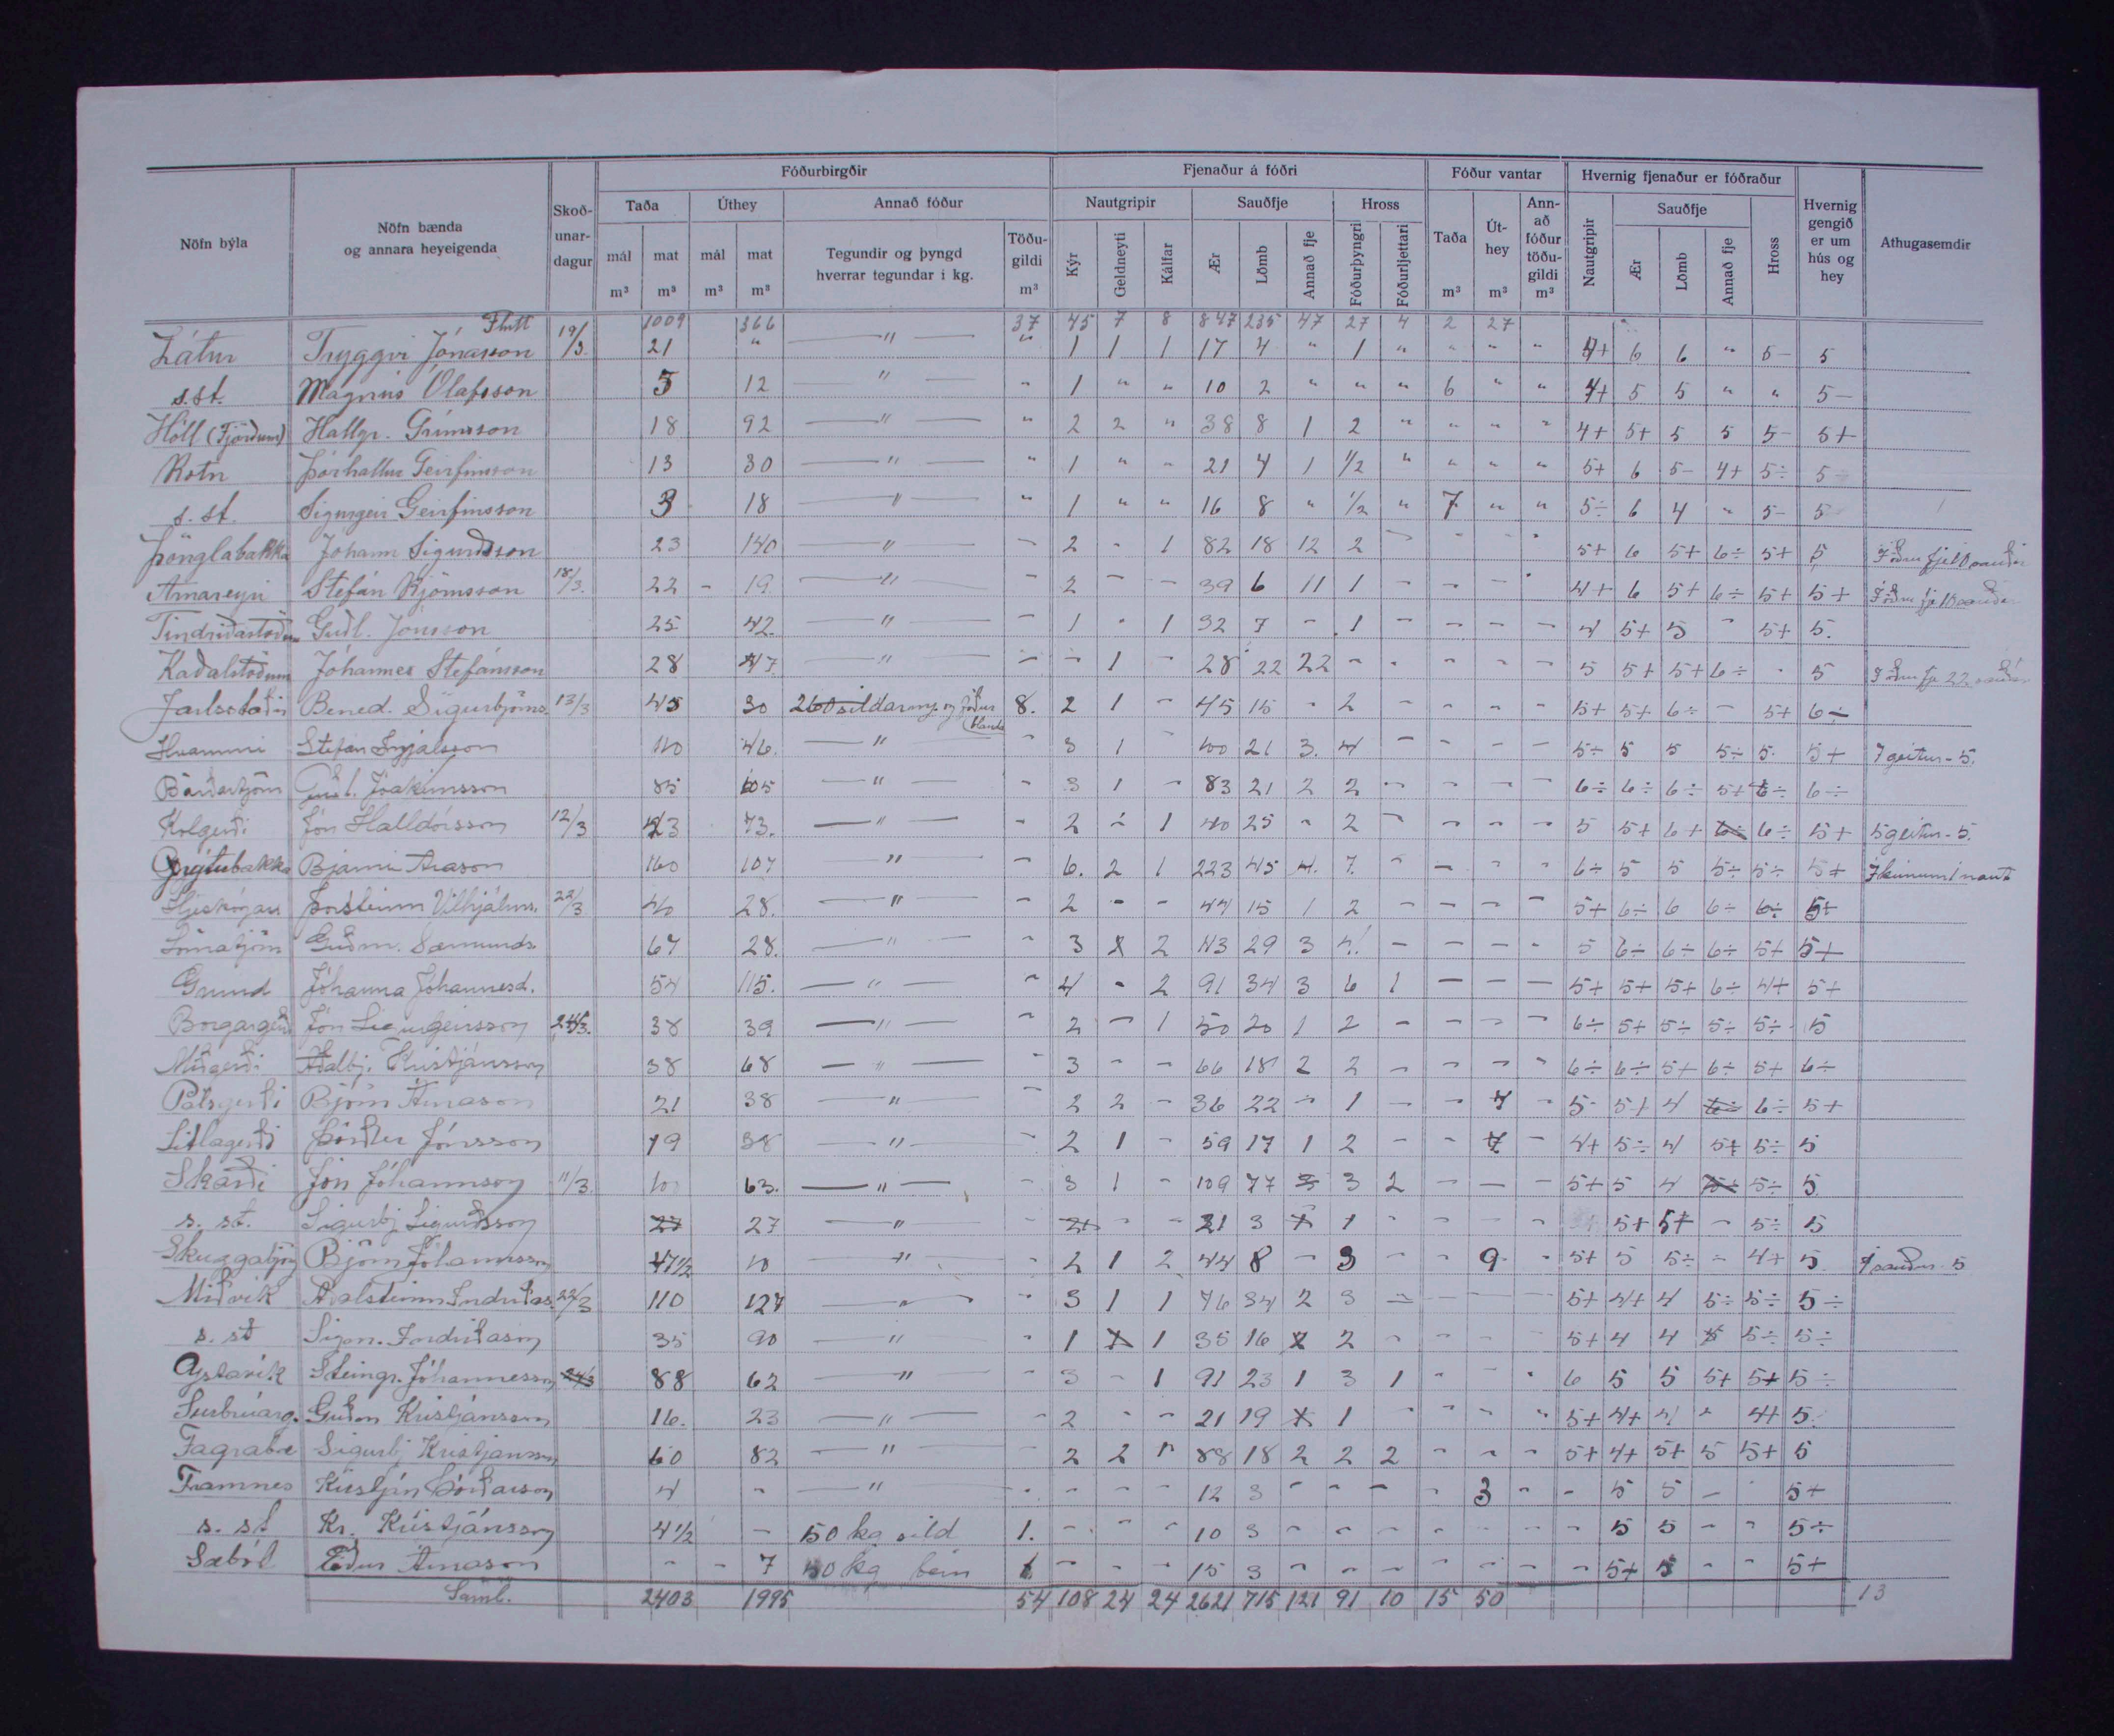 Fóðurbirgðir Fjenaður á fóðri Fóður vantar Hvernig fjenaður er fóðraður
Nöfn býla Nöfn bænda og annara heyeigenda Skoðunardagur Taða Úthey Annað fóður Nautgripir Sauðfje Hross Taða Úthey Annað fóður töðugildi m³ Nautgripir Sauðfje Hross Hvernig gengið er um hús og hey Athugasemdir
mál m³ mat m³ mál m³ mat m³ Tegundir og þyngd hverrar tegundar í kg. Töðugildi m³ Kýr Geldneyti Kálfar Ær Lömb Annað fje Fóðurþyngri Fóðurljettari m³ m³ Ær Lömb Annað fje
Flutt 1009 366 — " — 37 45 7 8 847 235 47 27 4 2 27
Látur Tryggvi Jónasson 19/3. 21 " " 1 1 1 17 4 " 1 " " " " 4+ 6 6 " 5- 5
s.st. Magnús Ólafsson 5 12 — " — " 1 " " 10 2 " " " 6 " " 4+ 5 5 " " 5-
Hóll (Fjörðum) Hallgr. Grímsson 18 92 — " — " 2 2 " 38 8 1 2 " " " " 4+ 5+ 5 5 5- 5+
Botn Þórhallur Geirfinsson 13 30 — " — " 1 " " 21 4 1 1/2 " " " " 5+ 6 5- 4+ 5÷ 5
s. st. Sigurgeir Geirfinsson 3 18 — " — " 1 " " 16 8 " 1/2 " 7 " " 5÷ 6 4 " 5- 5
Þönglabakka Jóhann Sigurðsson 23 140 — " — - 2 - 1 82 18 12 2 - - - - 5+ 6 5+ 6÷ 5+ 5
Stefán Björnsson 18/3. 22 - 19 — " — - 2 - - 39 6 11 1 - - - - 4+ 6 5+ 6÷ 5+ 5+
Tindriðastöðum Guðl. Jónsson 25 42. — " — - 1 - 1 32 7 - 1 - - - - 4 5+ 5 - 5+ 5.
Kaðalstöðum Jóhannes Stefánsson 28 47 — " — - - 1 - 28 22 22 - - - - - 5 5+ 5+ 6÷ - 5
Jarlsstaðir Bened. Sigurbjörns. 13/3 45 30 260 síldarmj. og fóðurblanda 8. 2 1 - 45 15 - 2 - - - - 5+ 5+ 6÷ - 5+ 6÷
Hvammi Stefán Ingjalsson 110 46. — " — - 3 1 - 100 21 3. 4 - - - - 5÷ 5 5 5÷ 5. 5+ 7 geitur - 5.
Bárðartjörn Guðl. Jóakimsson 85 105 — " — - 3 1 - 83 21 2 2 - - - - 6÷ 6÷ 6÷ 5+ 6÷ 6÷
Kolgerði Jón Halldórsson 12/3 43 73. — " — - 2 - 1 40 25 - 2 - - - - 5 5+ 6+ 6÷ 6÷ 5+ 5 geitur - 5.
Grýtubakka Bjarni Arason 160 107 — " — - 6. 2 1 223 45 4. 7. - - - - 6÷ 5 5 5÷ 5÷ 5+
Þorsteinn Vilhjálms. 22/3 40 28. — " — - 2 - - 44 15 1 2 - - - - 5+ 6÷ 6 6÷ 6÷ 5+
Lómatjörn Guðm. Sæmunds. 67 28. — " — - 3 2 113 29 3 4. - - - - 5 6÷ 6÷ 6÷ 5+ 5+
Grund Jóhanna Jóhannesd. 54 115. — " — - 4 - 2 91 34 3 6 1 - - - 5+ 5+ 5+ 6÷ 4+ 5+
Borgargerði Jón Sigurgeirsson 24/3. 38 39 — " — - 2 - 1 50 20 1 2 - - - - 6÷ 5+ 5÷ 5÷ 5÷ 5
Miðgerði Aðalbj. Kristjánsson 38 68 — " — - 3 - - 66 18 2 2 - - - - 6÷ 6÷ 5+ 6÷ 5+ 6÷
Pálsgerði Björn Árnason 21 38 — " — - 2 2 - 36 22 - 1 - - 7 - 5- 5+ 4 6÷ 6÷ 5+
Litlagerði Þórður Jónsson 19 38 — " — - 2 1 - 59 17 1 2 - - 7 - 4+ 5÷ 4 5+ 5÷ 5
Skarði Jón Jóhannsson 11/3. 63. — " — - 3 1 - 109 77 3 3 2 - - - 5+ 5 4 5÷ 5
s. st. Sigurbj Sigurðsson 27 27 — " — - - - 21 3 1 - - - - 5+ 5+ - 5÷ 5
Björn Jóhannsson 47 1/2 10 — " — - 2 1 2 44 8 - 3 - - 9 - 5+ 5 5÷ - 4+ 5
Miðvík Aðalsteinn Indriðas. 22/3 110 127 — " — 3 1 1 76 34 2 3 - - - - 5+ 4+ 4 5÷ 5÷ 5÷
s. st Sigm. Indriðason 35 90 — " — - 1 1 35 16 2 - - - - 5+ 4 4 5÷ 5÷
Ystavík Steingr. Jóhannesson 24/3 88 62 — " — - 3 - 1 91 23 1 3 1 - - - 6 5 5 5+ 5+ 5÷
Kristjánsson 16. 23 — " — - 2 - - 21 19 1 - - - - 5+ 4+ 4 - 4+ 5
Fagrabæ Sigurbj Kristjánsson 60 82 — " — - 2 2 - 88 18 2 2 2 - - - 5+ 4+ 5+ 5 5+ 5
Framnes Kristján Þórðarson 4 - — " — - - - - 12 3 - - - - 3 - - 5 5 - - 5+
s. st Kr. Kristjánsson 4 1/2 - 50 kg síld 1. - - - 10 3 - - - - - - - 5 5 - - 5÷
Sæból Eiður Árnason - - 7 50 kg bein 1 - - - 15 3 - - - - - - - 5+ 5 - - 5+
Saml. 2403 1995 54 108 24 24 2621 715 121 91 10 15 50 13